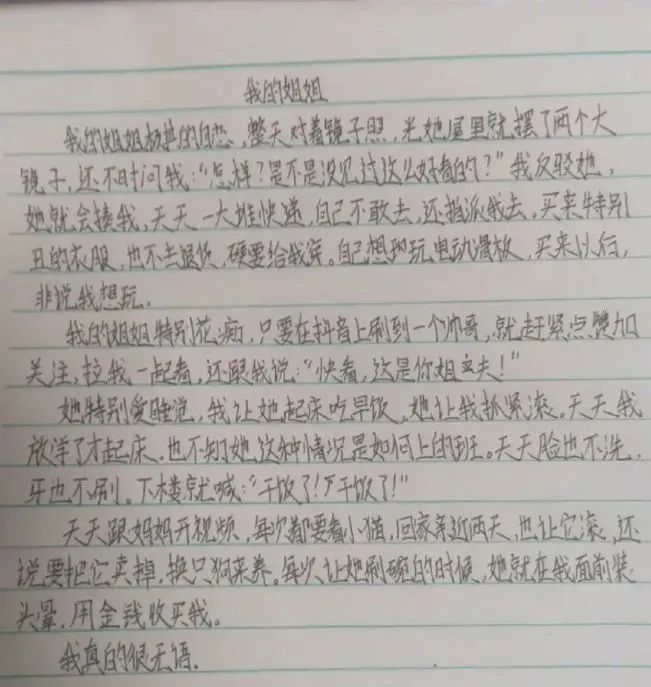 我的姐姐
我的姐姐极其的自恋,整天对着镜子照,光她屋里就摆了两个大
镜子,还不时问我:“怎样?是不是没见过这么好看的?”我反驳她,
她就会揍我,天天一大堆快递,自己不敢去,还指派我去,买来特别
丑的衣服,也不去退货,硬要给我穿。自己想玩电动滑板,买来以后,
非说我想玩.
我的姐姐特别花痴,只要在抖音上刷到一个帅哥,就赶紧点赞加
关注,拉我一起看,还跟我说:“快看,这是你姐丈夫!”
她特别爱睡觉,我让她起床吃早饭,她让我抓紧滚.天天我
放学了才起床.也不知她这种情况是如何上的班。天天脸也不洗,
牙也不刷。下楼就喊:“干饭了!干饭了!”
天天跟妈妈开视频,每次都要看小猫,回家亲近两天,也让它滚,还
说要把它卖掉,换只狗来养。每次让她刷碗的时候,她就在我面前装
头晕,用金钱收买我。
我真的很无语.